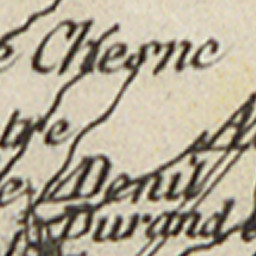 e Chesne
tre
e Denil
Durand